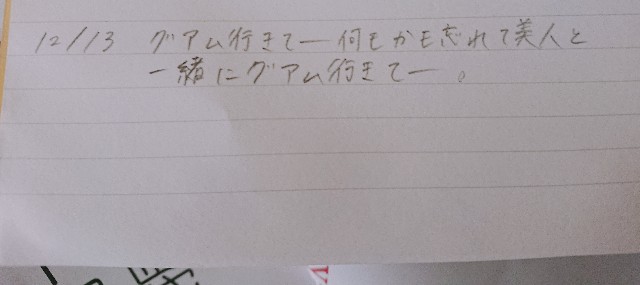 12/13 グアム行きてー何もかも忘れて美人と
一緒にグアム行きてー。